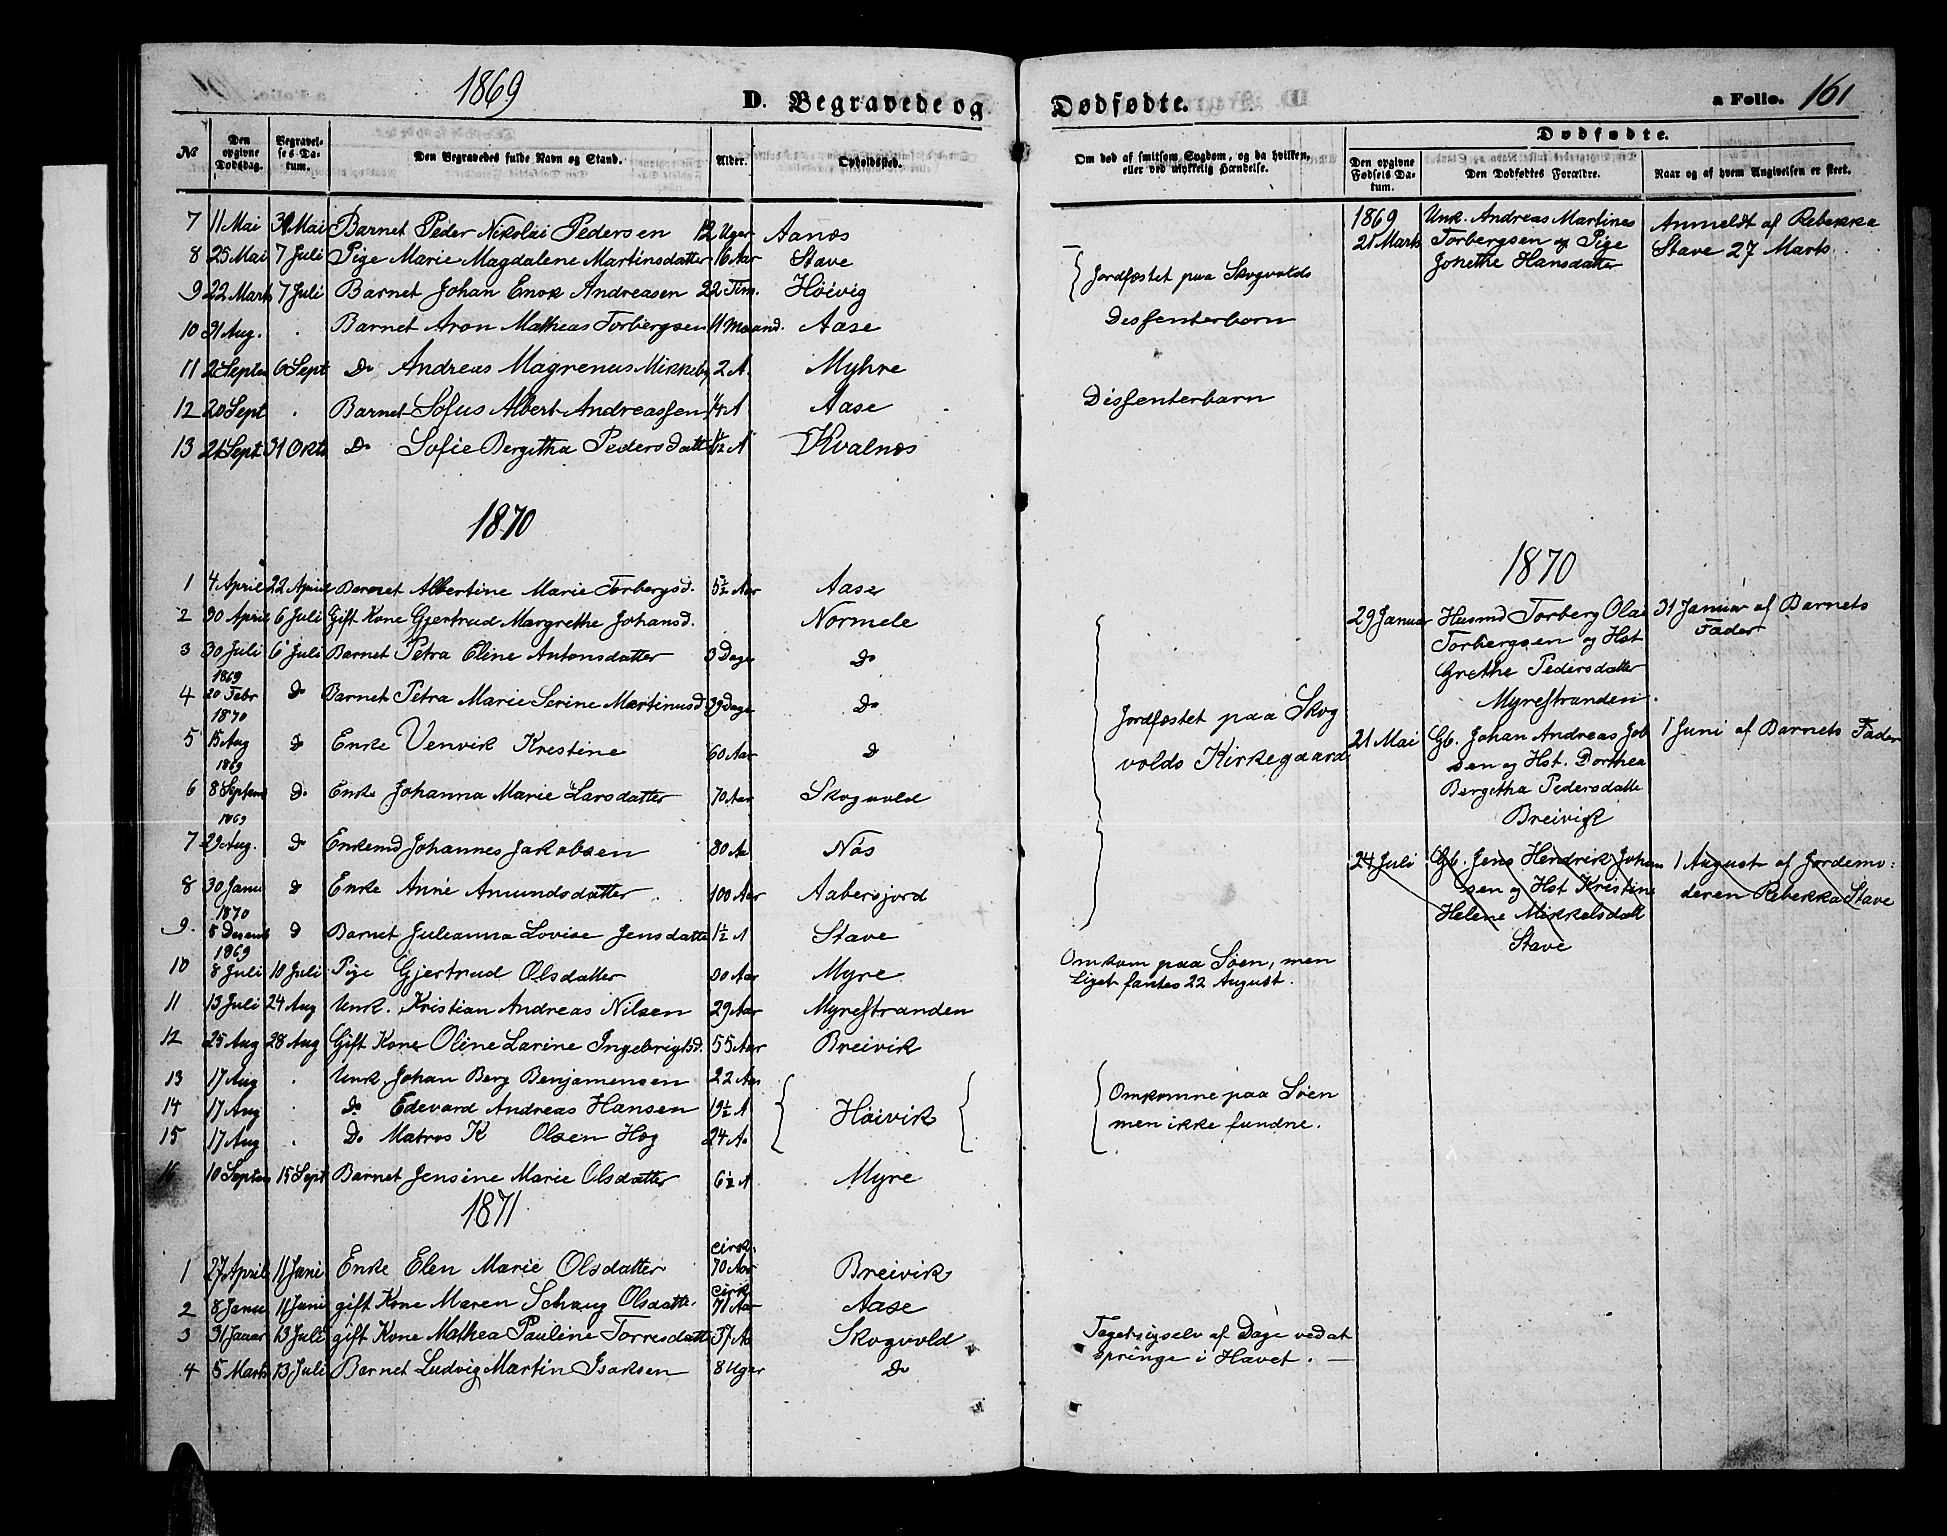 1869
D. Begravede og
Dødfødte.
a Folio. 161
№ Den opgivne Dødsdag. Begravelses-Datum. Den Begravedes fulde Navn og Stand. Alder. Opholdssted.
Om død af smitsom Sygdom, og da hvilken, eller ved ulykkelig Hændelse.
Dødfødte.
Den opgivne Fødsels Datum. Den Dødfødtes Forældre. Naar og af hvem Angivelsen er skeet.
7 11 Mai Mai Barnet Peder Nikolai Pedersen 12 Uger Aanæs
8 25 Mai 7 Juli Pige Marie Magdalene Martinsdatter 16 Aar Stave
9 22 Marts 7 Juli Barnet Johan Enok Andreasen 22 Tim. Höivig
10 31 Aug. . Barnet Aron Mathias Torbergsen 11 Maand. Aase
11 2 Septe 6 Sept Do Andreas Magrenus Mikkels 2 A. Myhre
12 20 Sept . Barnet Sofus Albert Andreassen 1/4 A Aase
13 21 Sept 31 Okt Do Sofie Bergitha Pedersdatt 1½ A Kvalnæs
1870
1 4 April 22 April Barnet Albertine Marie Torbergsd. 5½ Aar Aase
2 30 April 6 Juli Gift Kone Gjertrud Margrethe Johansd. Normele
3 30 Juli 6 Juli Barnet Petra Eline Antonsdatter 3 Dage Do
1869
4 20 Febr Do Barnet Petra Marie Serine Martinusd. 39 Dage Do
1870
5 15 Aug Do Enke Venvik Kristine 60 Aar Do
1869
6 8 Septem Do Enke Johanna Marie Larsdatter 70 Aar Skogvold
1869
7 29 Aug. Do Enkemd Johannes Jakobsen 80 Aa Nös
8 30 Janu Do Enke Anne Amundsdatter 100 Aar Aabersjord
1870
9. 8 Desemb D Barnet Juleanna Lovise Jensdatte 1½ A Stave
1869
10 8 Juli 10 Juli Pige Gjertrud Olsdatter 30 Aar Myre
11 13 Juli 24 Aug Unk. Kristian Andreas Nilsen 29 Aar Myrestranden
12 25 Aug 28 Aug Gift Kone Oline Larine Ingebrigtsd. 55 Aar Breivik
13 17 Aug . Unk Johan Berg Benjamensen 22 Aar
14 17 Aug . Do Edevard Andreas Hansen 19½ A Höivik
15 17 Aug . Do Matros K Olsen Hog 24 A.
16 10 Septem 15 Sept Barnet Jensine Marie Olsdatter 6½ A Myre
1871
1 27 April 11 Juni Enke Elen Marie Olsdatter cirk. 70 Aar Breivik
2 8 Janu 11 Juni gift Kone Maren Schaug Olsdatte. cirk 71 Aar Aase
3 31 Januar 13 Juli gift Kone Mathea Pauline Torresdatt 37 A Skogvold
4 5 Marts 13 Juli Barnet Ludvig Martin Isaksen 8 Uger Do
Jordfæstet paa Skogvolds
Dissenterbarn
Dissenterbarn
Jordfæstet paa Skog
volds Kirkegaard
Omkom paa Söen, men
Liget fantes 22 August.
Omkomne paa Söen
men ikke fundne.
Taget sig selv af Dage ved at
springe i Havet. —
1869 Unk. Andreas Martines Anmeldt af Rebekka
21 Marts Torbergsen og Pige Stave 27 Marts.
Jonethe Hansdatter
1870
29 Januar Husmd Torberg Olai 31 Januar af Barnets
Torbergsen og Hst Fader
Grethe Pedersdatter
Myrestranden.
21 Mai Gb. Johan Andreas Job 1 Juni af Barnets Fader
sen og Hst. Dorthea
Bergitha Pedersdatte
Breivik
24 Juli Gb. Jens Hendrik Johan 1 August af Jordemo:
sen og Hst Kristine deren Rebekka Stave
Helene Mikkelsdatt
Stave